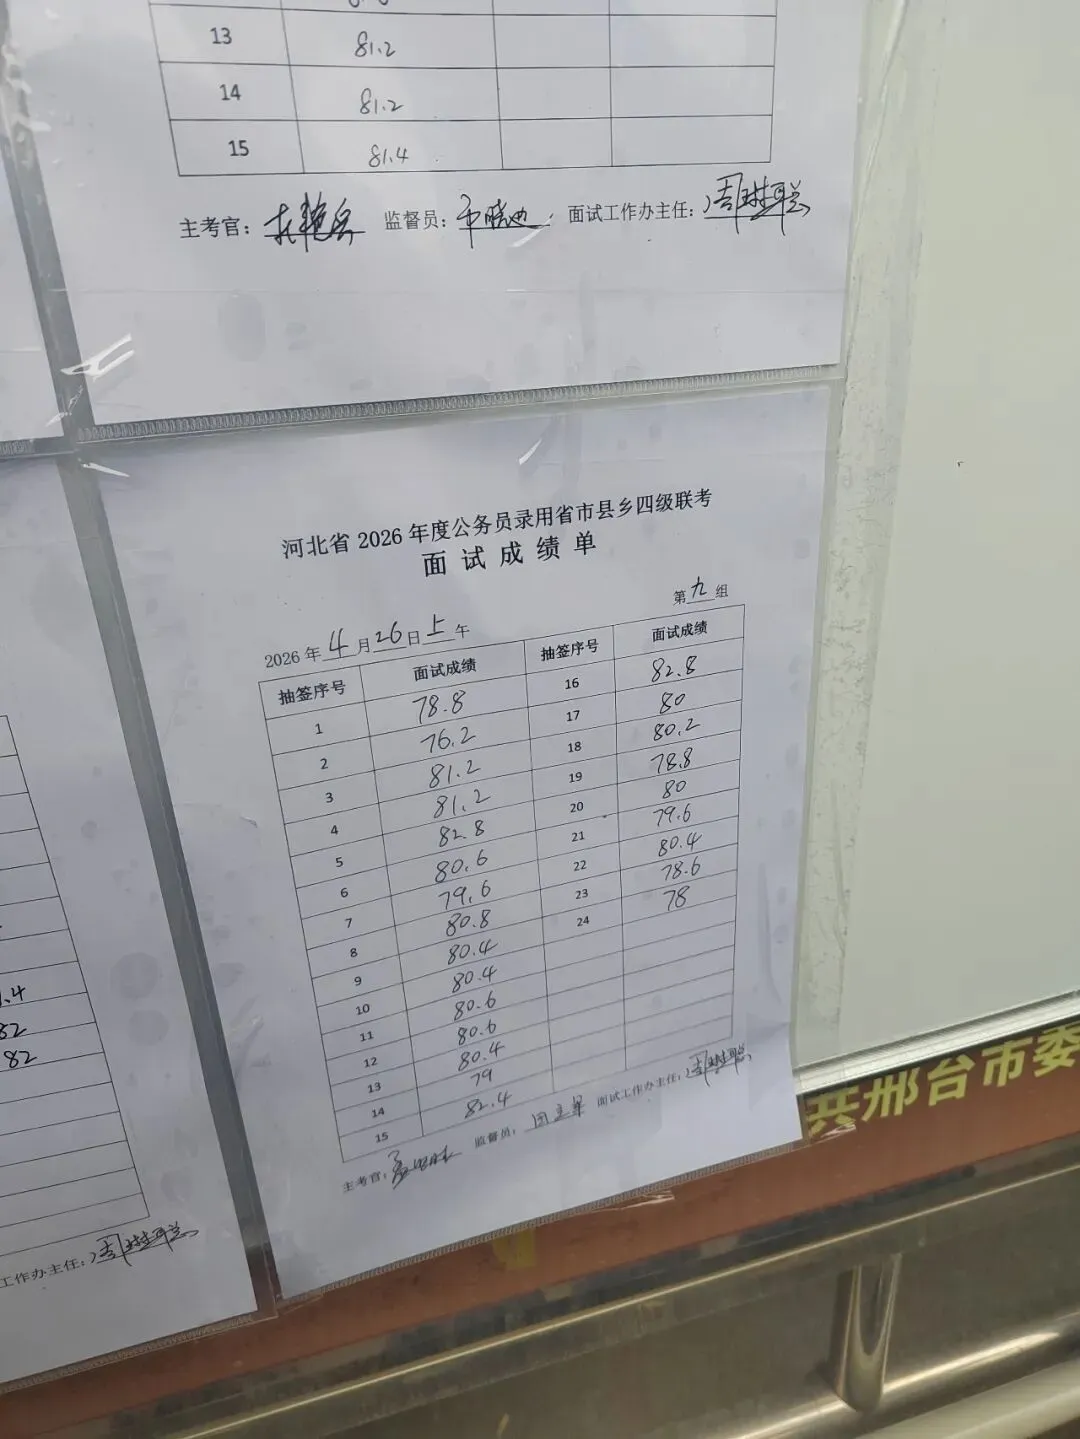 13 81.2
14 81.2
15 81.4
主考官: 监督员: 面试工作办主任:
河北省 2026 年度公务员录用省市县乡四级联考
面试成绩单
第九组
2026 年 4 月 26 日 上 午
抽签序号 面试成绩 抽签序号 面试成绩
1 78.8 16 82.8
2 76.2 17 80
3 81.2 18 80.2
4 81.2 19 78.8
5 82.8 20 80
6 80.6 21 79.6
7 79.6 22 80.4
8 80.8 23 78.6
9 80.4 24 78
10 80.4
11 80.6
12 80.6
13 80.4
14 79
15 82.4
主考官: 监督员: 面试工作办主任:
82
82
工作办主任:
共邢台市委